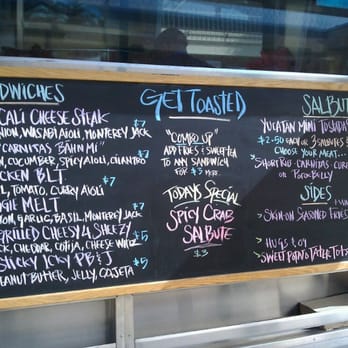 DWICHES
CALI CHEESE STEAK
ION, WASABI AIOLI, MONTEREY JACK
$7
"CARNITAS BAHN MI"
N, CUCUMBER, SPICY AIOLI, CILANTRO
$7
CKEN BLT
L, TOMATO, CURRY AIOLI
$7
GIE MELT
ON, GARLIC, BASIL, MONTEREY JACK
$7
GRILLED CHEESY & SHEEZY
CK, CHEDDAR, COTIJA, CHEESE WHIZ
$5
STICKY ICKY PB & J
EANUT BUTTER, JELLY, COJETA
$5
GET TOASTED
"COMBO UP"
ADD FRIES & SWEET TEA
TO ANY SANDWICH
FOR $3 MORE
TODAYS SPECIAL
SPICY CRAB
SALBUTE
$3
SALBUTE
YUCATAN MINI TOSTADA
$2.50 EACH OR 3 SALBUTES $
CHOOSE YOUR MEAT...
SHORT RIB CARNITAS CURR
OR PORK BELLY
SIDES
SKIN-ON SEASONED FRIES
SWEET POTATO TATER TOTS